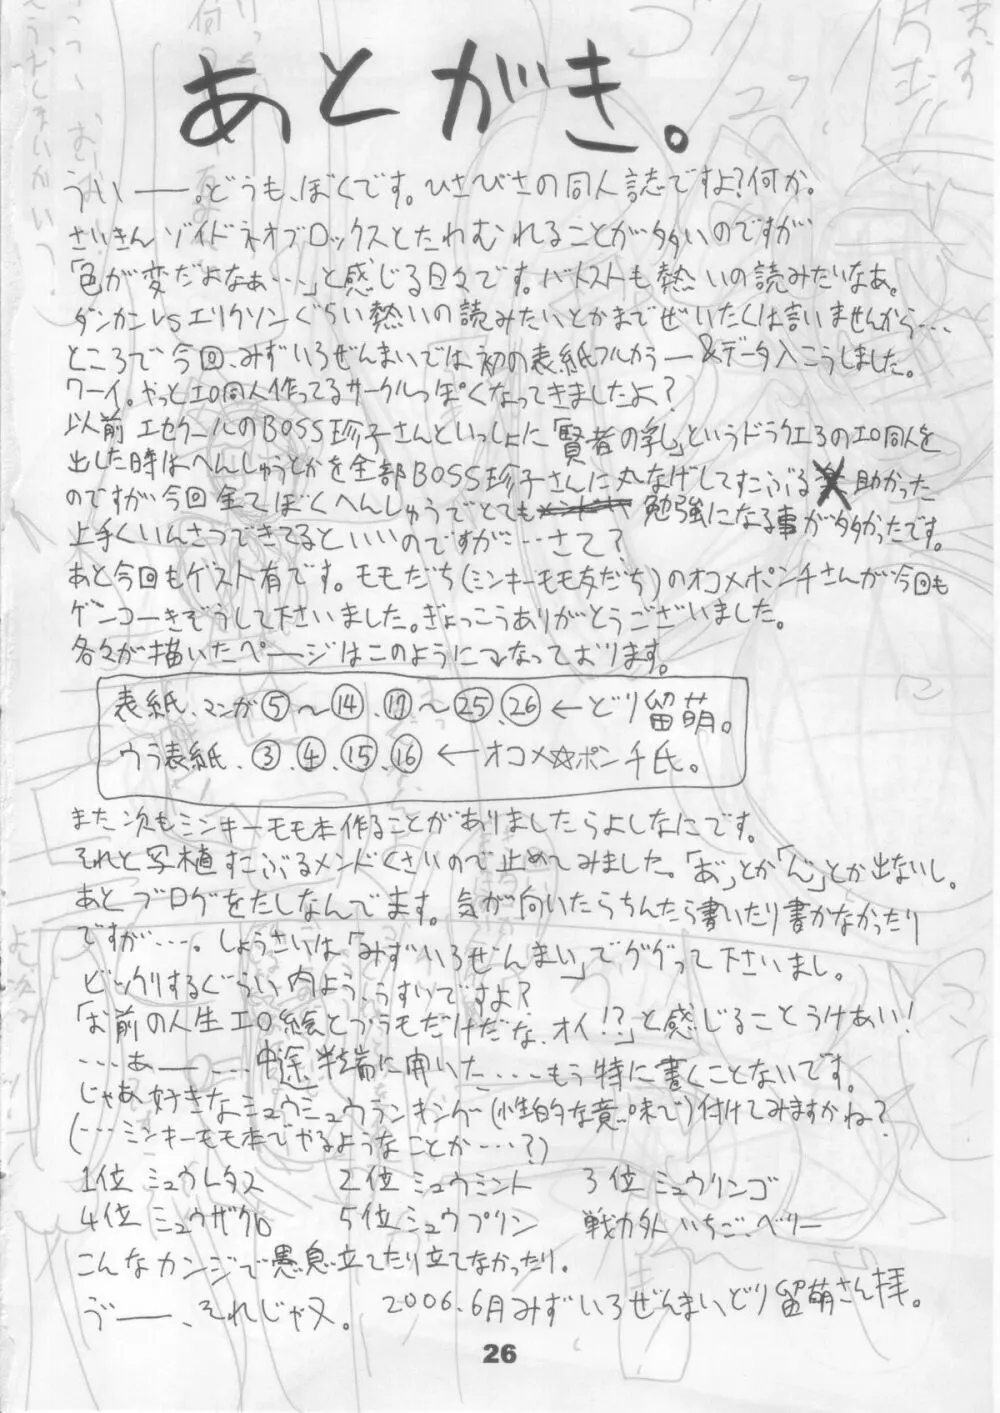 あとがき。
ういー。どうも、ぼくです。ひさびさの同人誌ですよ?何か。
さいきんゾイドネオブロックスとたわむれることが多いのですが
「色が変だよなぁ…」と感じる日々です。バトストも熱いの読みたいなあ。
ダンカンvsエリクソンぐらい熱いの読みたいとかまでぜいたくは言いませんから…
ところで今回、みずいろぜんまいでは初の表紙フルカラー&データ入こうしました。
ワーイ。やっとエロ同人作ってるサークルっぽくなってきましたよ?
以前エセクールのBOSS珍子さんといっしょに「賢者の乳」というドラクエ3のエロ同人を
出した時はへんしゅうとかを全部BOSS珍子さんに丸なげしてすこぶる助かった
のですが今回全てぼくへんしゅうでとても勉強になる事が多かったです。
上手くいんさつできてるといいのですが……さて?
あと今回もゲスト有です。モモだち(ミンキーモモ友だち)のオコメポンチさんが今回も
ゲンコーきぞうして下さいました。ぎょっこうありがとうございました。
各々が描いたページはこのように↷なっております。
表紙、マンガ⑤〜⑭、⑰〜㉕、㉖←どり留萌。
ウラ表紙、③、④、⑮、⑯←オコメ☆ポンチ氏。
また次もミンキーモモ本作ることがありましたらよしなにです。
それと写植すこぶるメンドくさいので止めてみました。「あ゛」とか「ん゛」とか出ないし。
あとブログをたしなんでます。気が向いたらちんたら書いたり書かなかったり
ですが…。しょうさいは「みずいろぜんまい」でググって下さいまし。
ビックリするぐらい内よう、うすいですよ?
「お前の人生エロ絵とプラモだけだな、オイ!?」と感じることうけあい!
…あー……中途半端に開いた……もう特に書くことないです。
じゃあ好きなミュウミュウランキング(性的な意味で)付けてみますかね?
(…ミンキーモモ本でやるようなことか…?)
1位 ミュウレタス 2位 ミュウミント 3位 ミュウリンゴ
4位 ミュウザクロ 5位 ミュウプリン 戦力外 いちご、ベリー
こんなカンジで愚息立てたり立てなかったり。
う゛ー、それじゃヌ。 2006.6月みずいろぜんまい、どり留萌さん拝。
26